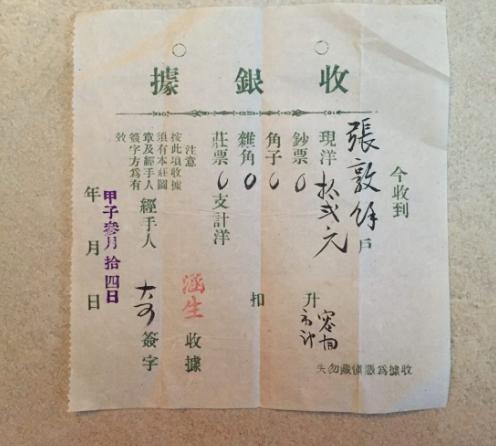 收銀據
今收到
張敦餘戶
現洋拾弍元
鈔票0
角子0
雜角0
莊票0支計洋
升
扣
涵生收據
注意
按此項收據
須有本莊圖
章及經手人
簽字方爲有
效
經手人簽字
甲子參月拾四日
年月日
收據爲憑倘藏勿失